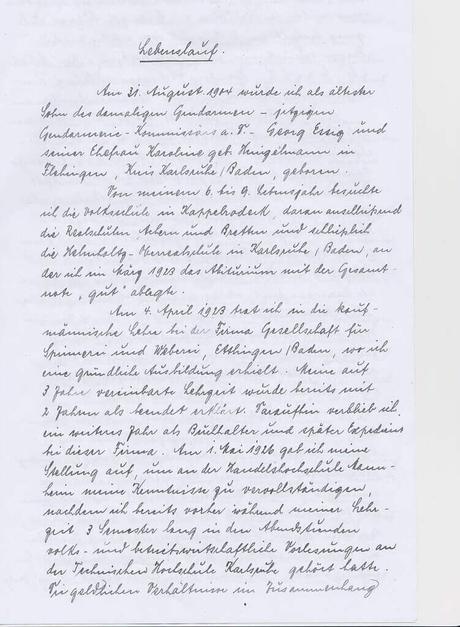 Lebenslauf.
Am 31. August 1904 wurde ich als ältester
Sohn des damaligen Gendarmen – jetzigen
Gendarmerie-Kommissärs a. D. – Georg Essig und
seiner Ehefrau Karoline geb. in
Flehingen, Kreis Karlsruhe/Baden, geboren.
Von meinem 6. bis 9. Lebensjahr besuchte
ich die Volksschule in Kappelrodeck, daran anschließend
die Realschulen Achern und Bretten und schließlich
die Helmholtz-Oberrealschule in Karlsruhe/Baden, an
der ich im März 1923 das Abiturium mit der Gesamt-
note „gut" ablegte.
Am 4. April 1923 trat ich in die kauf-
männische Lehre bei der Firma Gesellschaft für
Spinnerei und Weberei, Ettlingen/Baden, wo ich
eine gründliche Ausbildung erhielt. Meine auf
3 Jahre vereinbarte Lehrzeit wurde bereits mit
2 Jahren als beendet erklärt. Daraufhin verblieb ich
ein weiteres Jahr als Buchhalter und später Expedient
bei dieser Firma. Am 1. Mai 1926 gab ich meine
Stellung auf, um an der Handelshochschule Mann-
heim meine Kenntnisse zu vervollständigen,
nachdem ich bereits vorher während meiner Lehr-
zeit 3 Semester lang in den Abendstunden
volks- und betriebswirtschaftliche Vorlesungen an
der Technischen Hochschule Karlsruhe gehört hatte.
Die geldlichen Verhältnisse im Zusammenhang